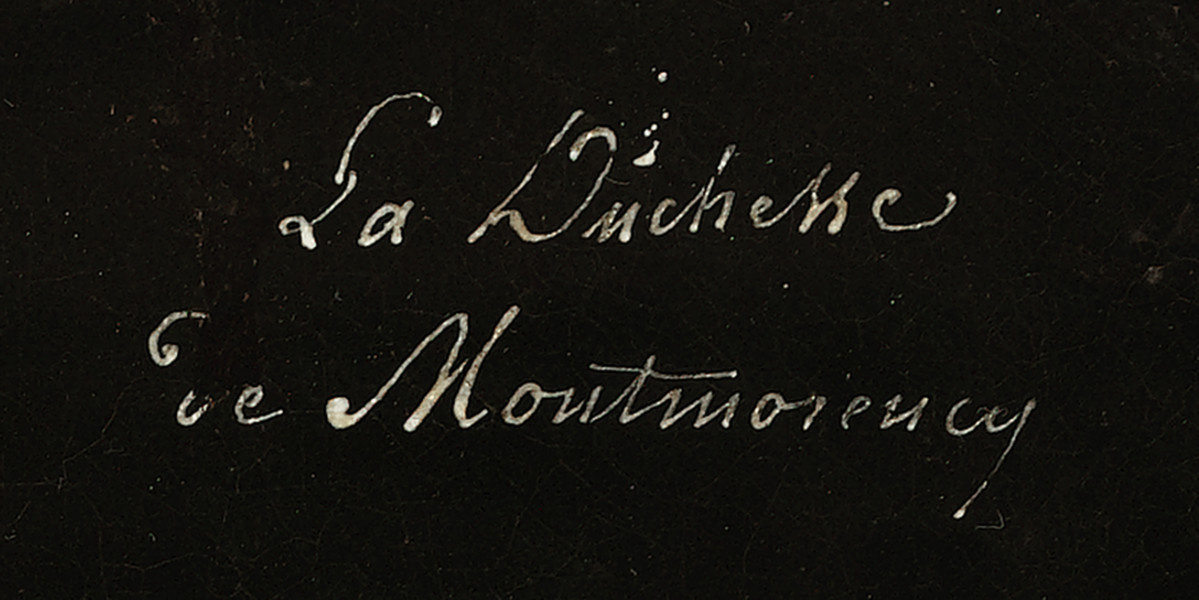 La Duchesse
de Montmorency